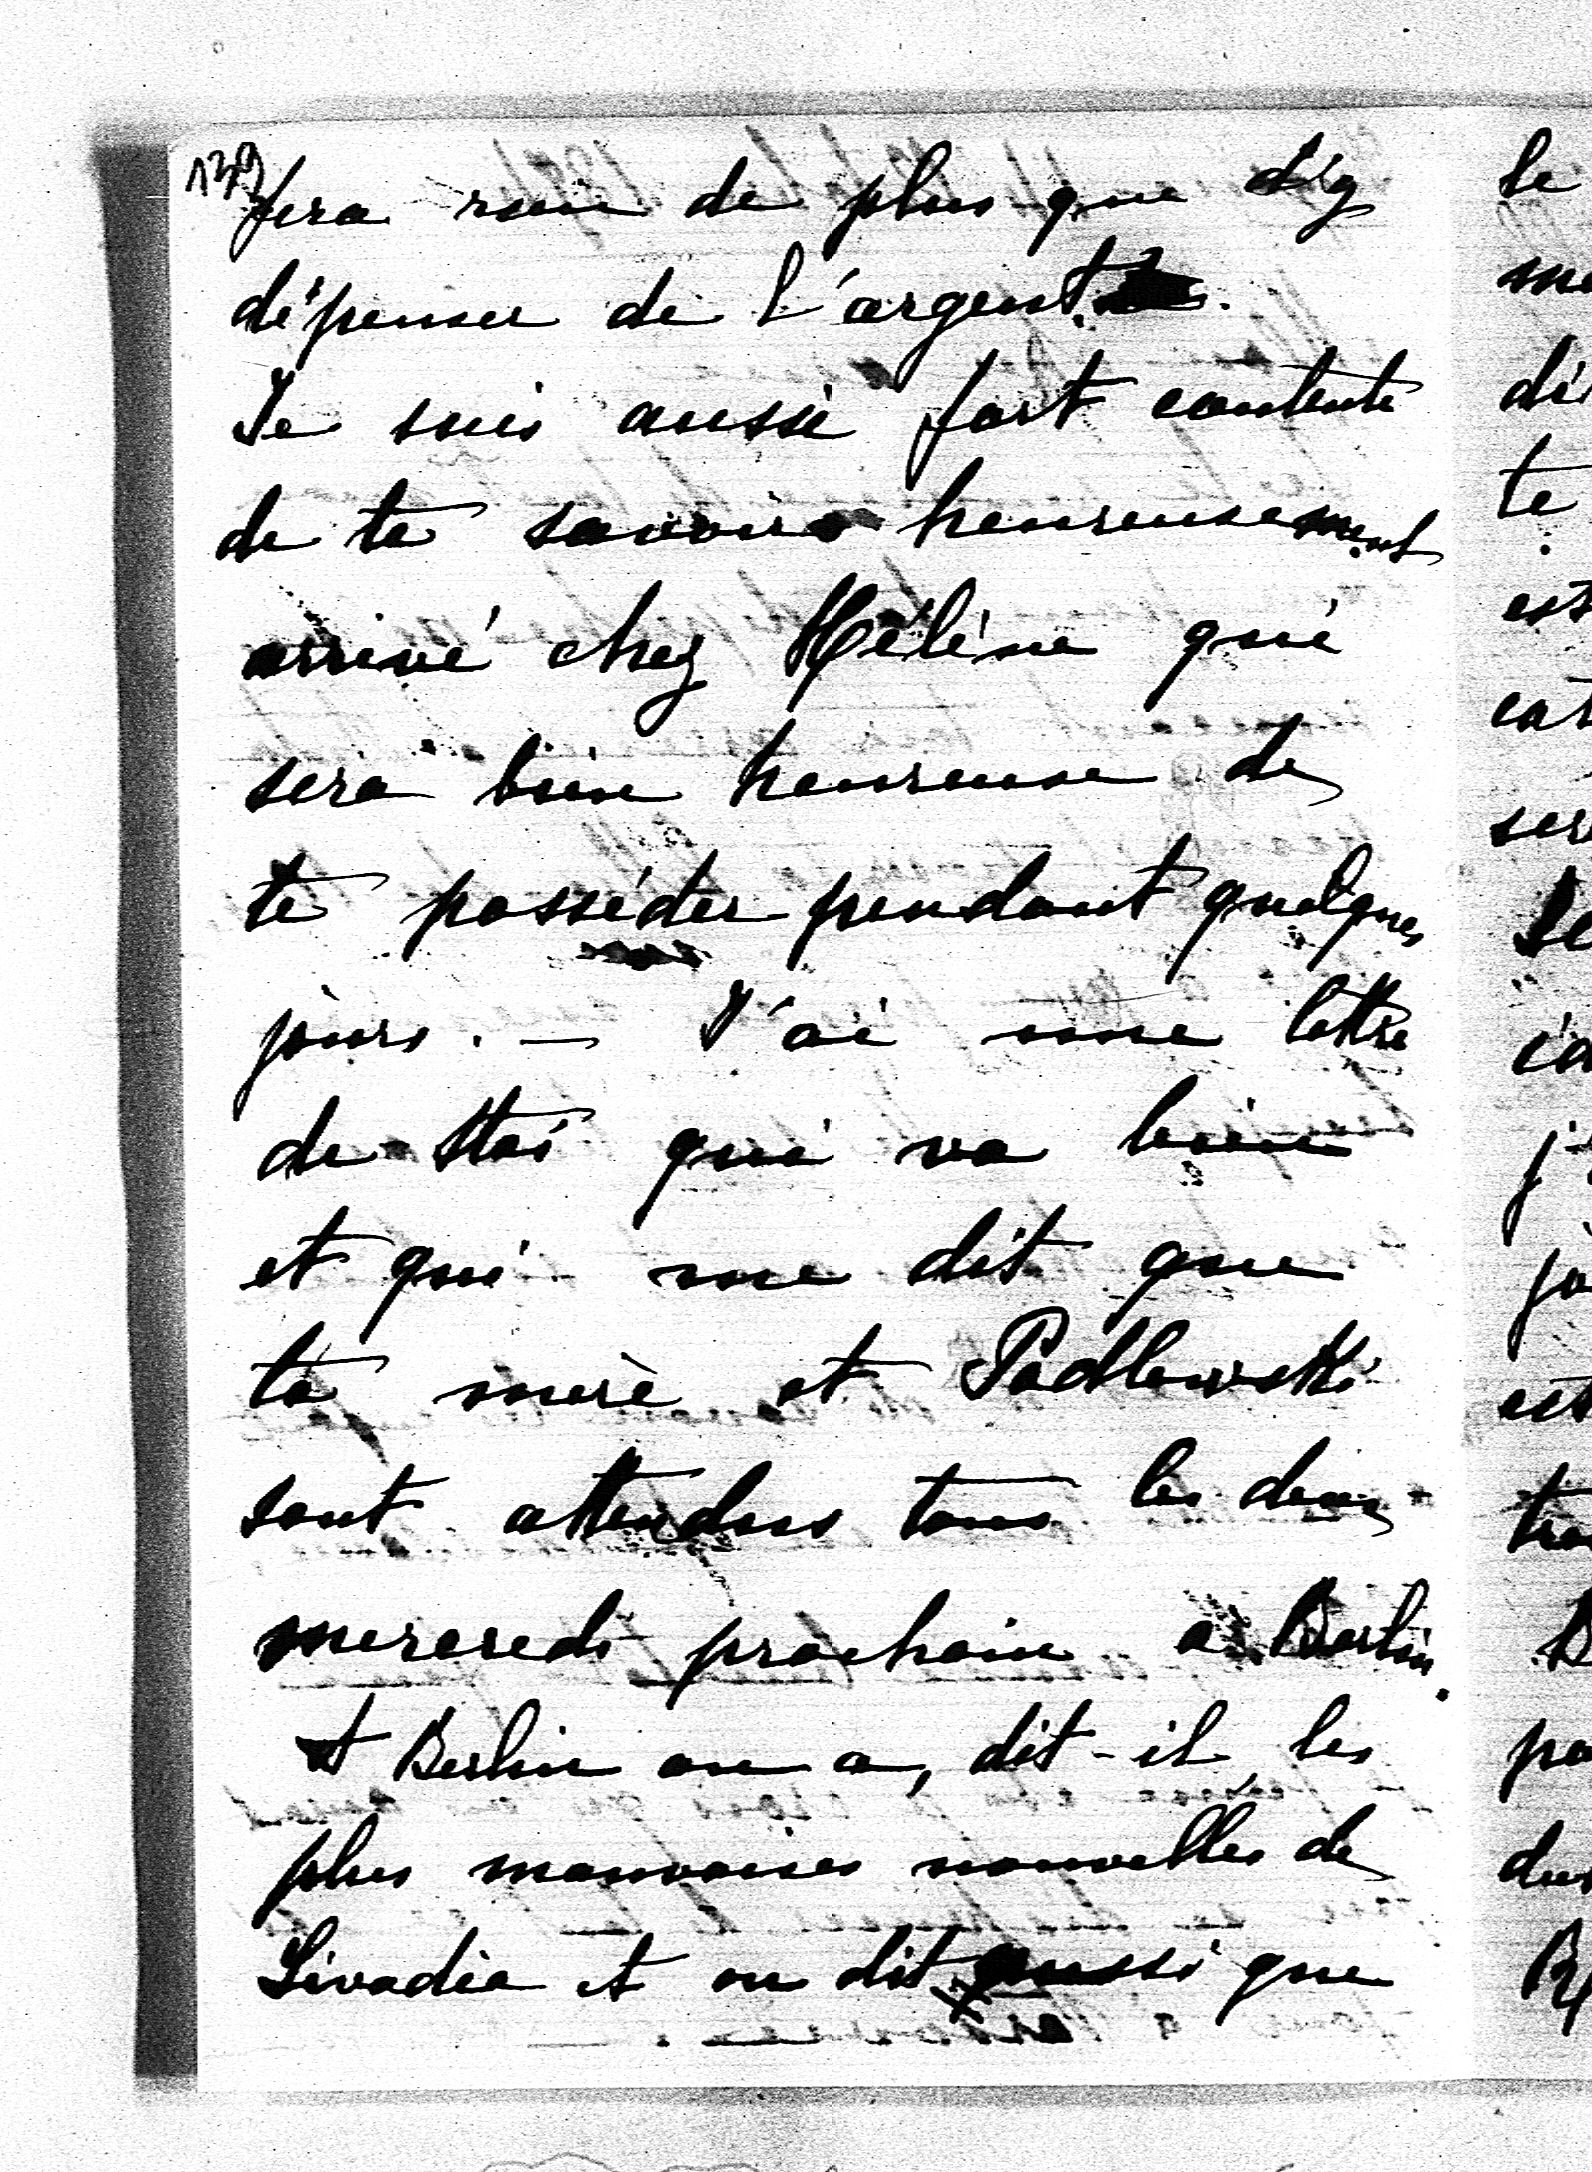 139
fera rien de plus que d'y
dépenser de l'argent.
Je suis aussi fort contente
de te savoir heureusement
arrivé chez Hélène qui
sera bien heureuse de
te posséder pendant quelques
jours. — J'ai une lettre
de Stas qui va bien
et qui me dit que
ta mère et Podlewski
sont attendus tous les deux
mercredi prochain a Berlin.
A Berlin on a, dit-il, les
plus mauvaises nouvelles de
Livadia et on dit aussi que
le
te
est